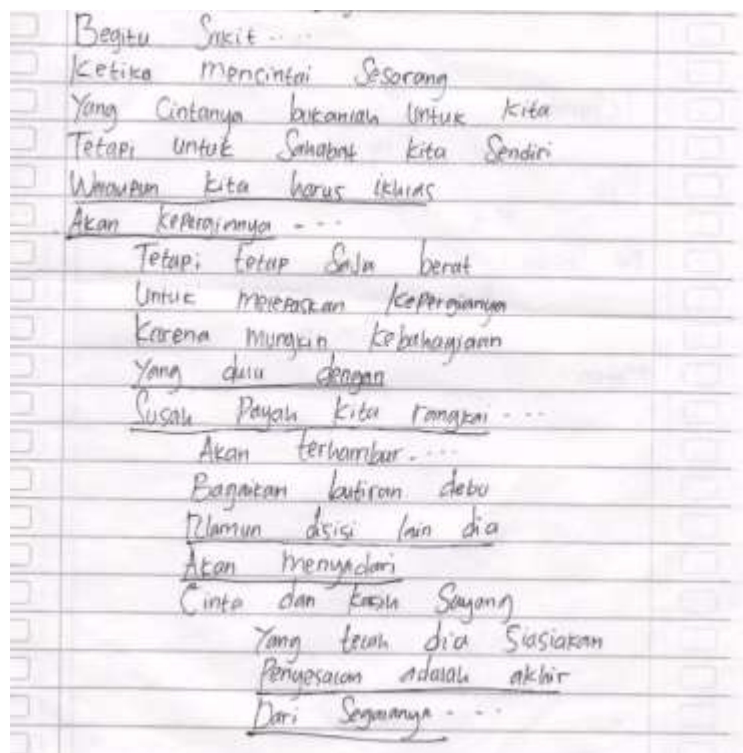 Begitu Sakit....
Ketika mencintai Sesorang
Yang Cintanya bukanlah Untuk Kita
Tetapi untuk Sahabat kita Sendiri
Walaupun kita harus ikhlas
Akan Kepergiannya ....
Tetapi tetap Saja berat
Untuk melepaskan Kepergianya
Karena mungkin kebahagiaan
Yang dulu dengan
Susah Payah Kita rangkai ....
Akan terhambur....
Bagaikan butiran debu
Namun disisi lain dia
Akan menyadari
Cinta dan kasih Sayang
Yang telah dia Siasiakan
Penyesalan adalah akhir
Dari Segalanya ....